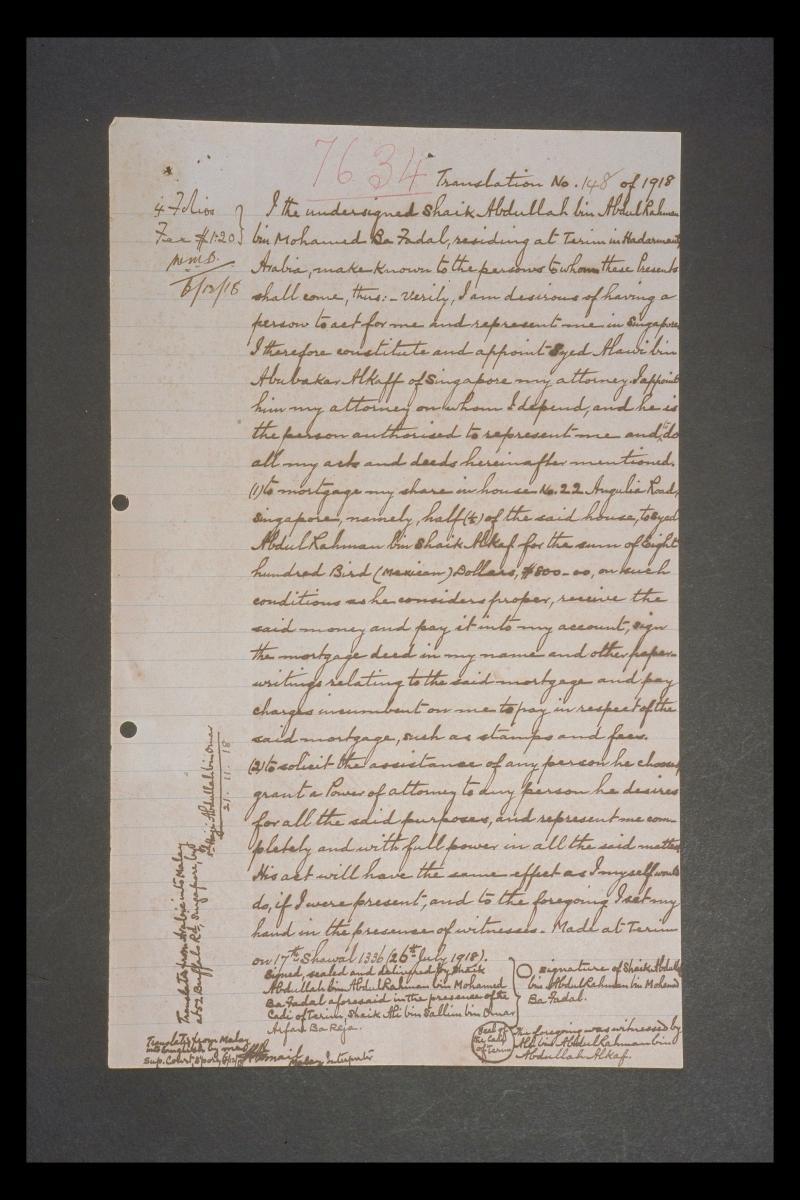 7634
Translation No. 148 of 1918
4 Folios
Fee $1.20
6/12/18
I the undersigned Shaik Abdullah bin Abdul Rahman
bin Mohamed Ba Fadal, residing at Terim in Hadermeut,
Arabia, make known to the persons to whom these Presents
shall come, thus:- Verily, I am desirous of having a
person to act for me and represent me in Singapore.
I therefore constitute and appoint Syed Alawi bin
Abubakar Alkaff of Singapore my attorney. I appoint
him my attorney on whom I depend, and he is
the person authorised to represent me and to do
all my acts and deeds hereinafter mentioned.
(1) to mortgage my share in house No. 22 Angulia Road,
Singapore, namely, half (½) of the said house, to Syed
Abdul Rahman bin Shaik Alkaf for the sum of Eight
hundred Bird (Mexican) Dollars, $800-00, on such
conditions as he considers proper, receive the
said money and pay it into my account, sign
the mortgage deed in my name and other paper-
writings relating to the said mortgage and pay
charges incumbent on me to pay in respect of the
said mortgage, such as stamps and fees.
(2) to solicit the assistance of any person he chooses,
grant a Power of attorney to any person he desires
for all the said purposes, and represent me com-
pletely and with full power in all the said matters.
His act will have the same effect as I myself would
do, if I were present, and to the foregoing I set my
hand in the presence of witnesses. Made at Terim
on 17th Shawal 1336 (26th July 1918).
Signed, sealed and delivered by Shaik
Abdullah bin Abdul Rahman bin Mohamed
Ba Fadal aforesaid in the presence of the
Cadi of Terim, Sheik Ali bin Sallim bin Omar
Arfan Ba Reja.
Signature of Shaik Abdullah
bin Abdul Rahman bin Mohamed
Ba Fadal.
Seal of
the Cadi
of Terim
The foregoing was witnessed by
Ali bin Abdul Rahman bin
Abdullah Alkaf.
Translated from Arabic into Malay
at 52 Buffalo Rd, Singapore, by
Haji Abdullah bin Omar
21. 11. 18
Translated from Malay
into English by me
Sup. Court, S'pore, 6/12/18
Malay Interpreter